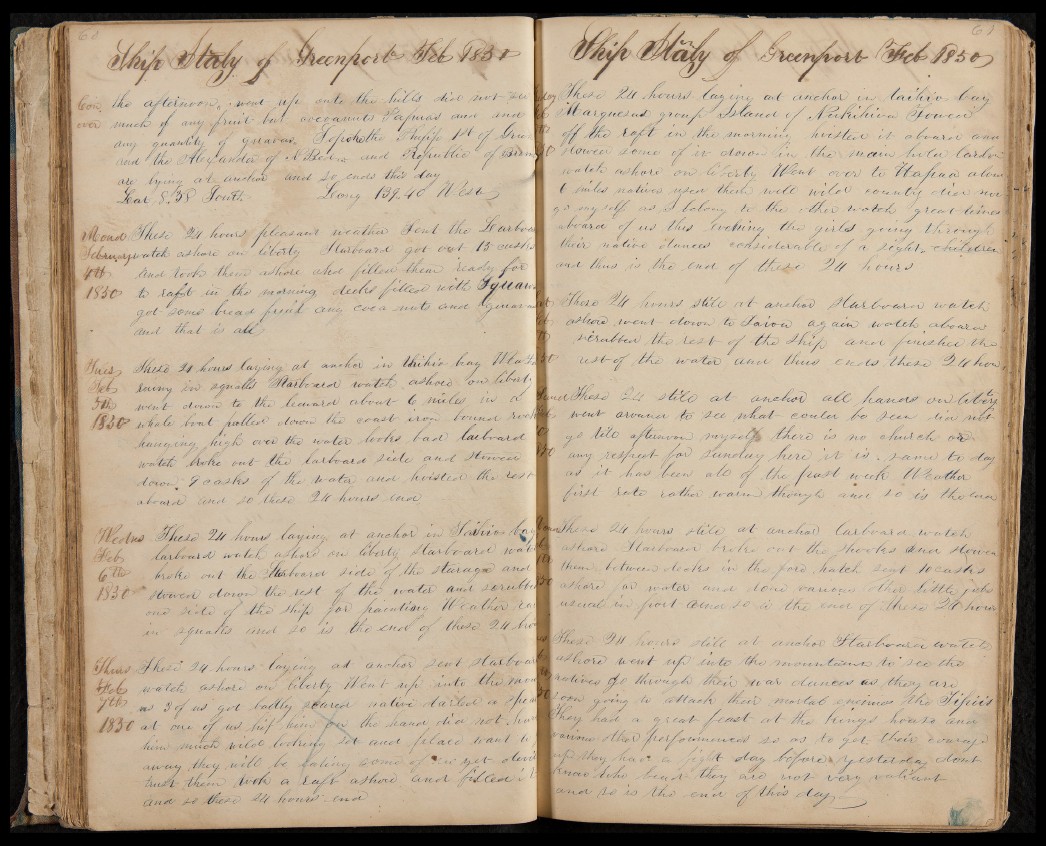 60
Ship Italy of Greenport Feb 1850
Con the afternoon, went up onto the hills did not see
over much of any fruit but cocoanuts Tapuas and and
any quantity of guavas, 1st of
and the Alexander of N and Republic of
are lying at anchor and so ends this day
Lat. 8.58 South. Long 139.40 West
Mond These 24 hours pleasant weather Sent the Larboard
February watch ashore on liberty Starboard got out 15 casks
4th and took them ashore and filled them ready for
1850 to raft in the morning decks filled with Squaws
got some bread fruit cocoa nuts and guavas
and that is all
Tues These 24 hours laying at anchor in bay
Feb Rainy in squalls Starboard watch ashore on liberty
5th went down to the leward about 6 miles in a
1850 whale boat pulled down the coast iron bound rocks
hanging high over the water looks bad larboard
watch broke out the larboard side and stowed
down 7 casks of the water and hoisted the rest
aboard and so these 24 hours end
Wednes These 24 hours laying at anchor in bay
Feb larboard watch ashore on liberty Starboard watch
6th broke out the Starboard side of the sturage and
1850 stowed down the rest of the water and scrubbed
one side of the ship for painting Weather
in squalls and so is the end of these 24 hrs
Thurs These 24 hours laying at anchor sent starboard
Feb watch ashore on liberty Went up into the
7th as 3 of us got badly scared native darted a spear
1850 at one of us hit him on the hand did not hurt
him much wild looking set and place want to
away they will be eating some of us yet
trust them took a raft ashore and filled it
and so these 24 hours end
61
Ship Italy of Greenport Feb 1850
These 24 hours laying at anchor in bay
Marquesas group Island of Nukihiva Towed
off the raft in the morning hoisted it aboard and
stowed some of it down in the main hold Larboard
watch ashore on liberty Went over to about
6 miles natives used them well wild country did not
go myself as I belong to the other watch great times
aboard of us this evening the girls going through
their native dances considerable of a sight, children
and thus is the end of these 24 hours
These 24 hours still at anchor Starboard watch
ashore went down to again watch aboard
scrubbed the rest of the ship and finished the
rest of the water and thus ends these 24 hours
These 24 still at anchor all hands on liberty
went around to see what could be seen did not
go till afternoon myself there is no church or
any respect for Sunday here it is same to day
as it has been all of the past week Weather
first rate rather warm though and so is the end
These 24 hours still at anchor Larboard watch
ashore Starboard broke out the shooks and stowed
them between decks in the fore hatch sent 10 casks
ashore for water and done various other little jobs
usual in port and so is the end of these 24 hours
These 24 hours still at anchor Starboard watch
ashore went up into the mountains to see the
natives go through their war dances as they are
soon going to attack their mortal enemies the
They had a great feast at the kings house and
various other performances so as to get their courage
up they had a fight day before yesterday dont
know who beat they are not very valiant
and so is the end of this day